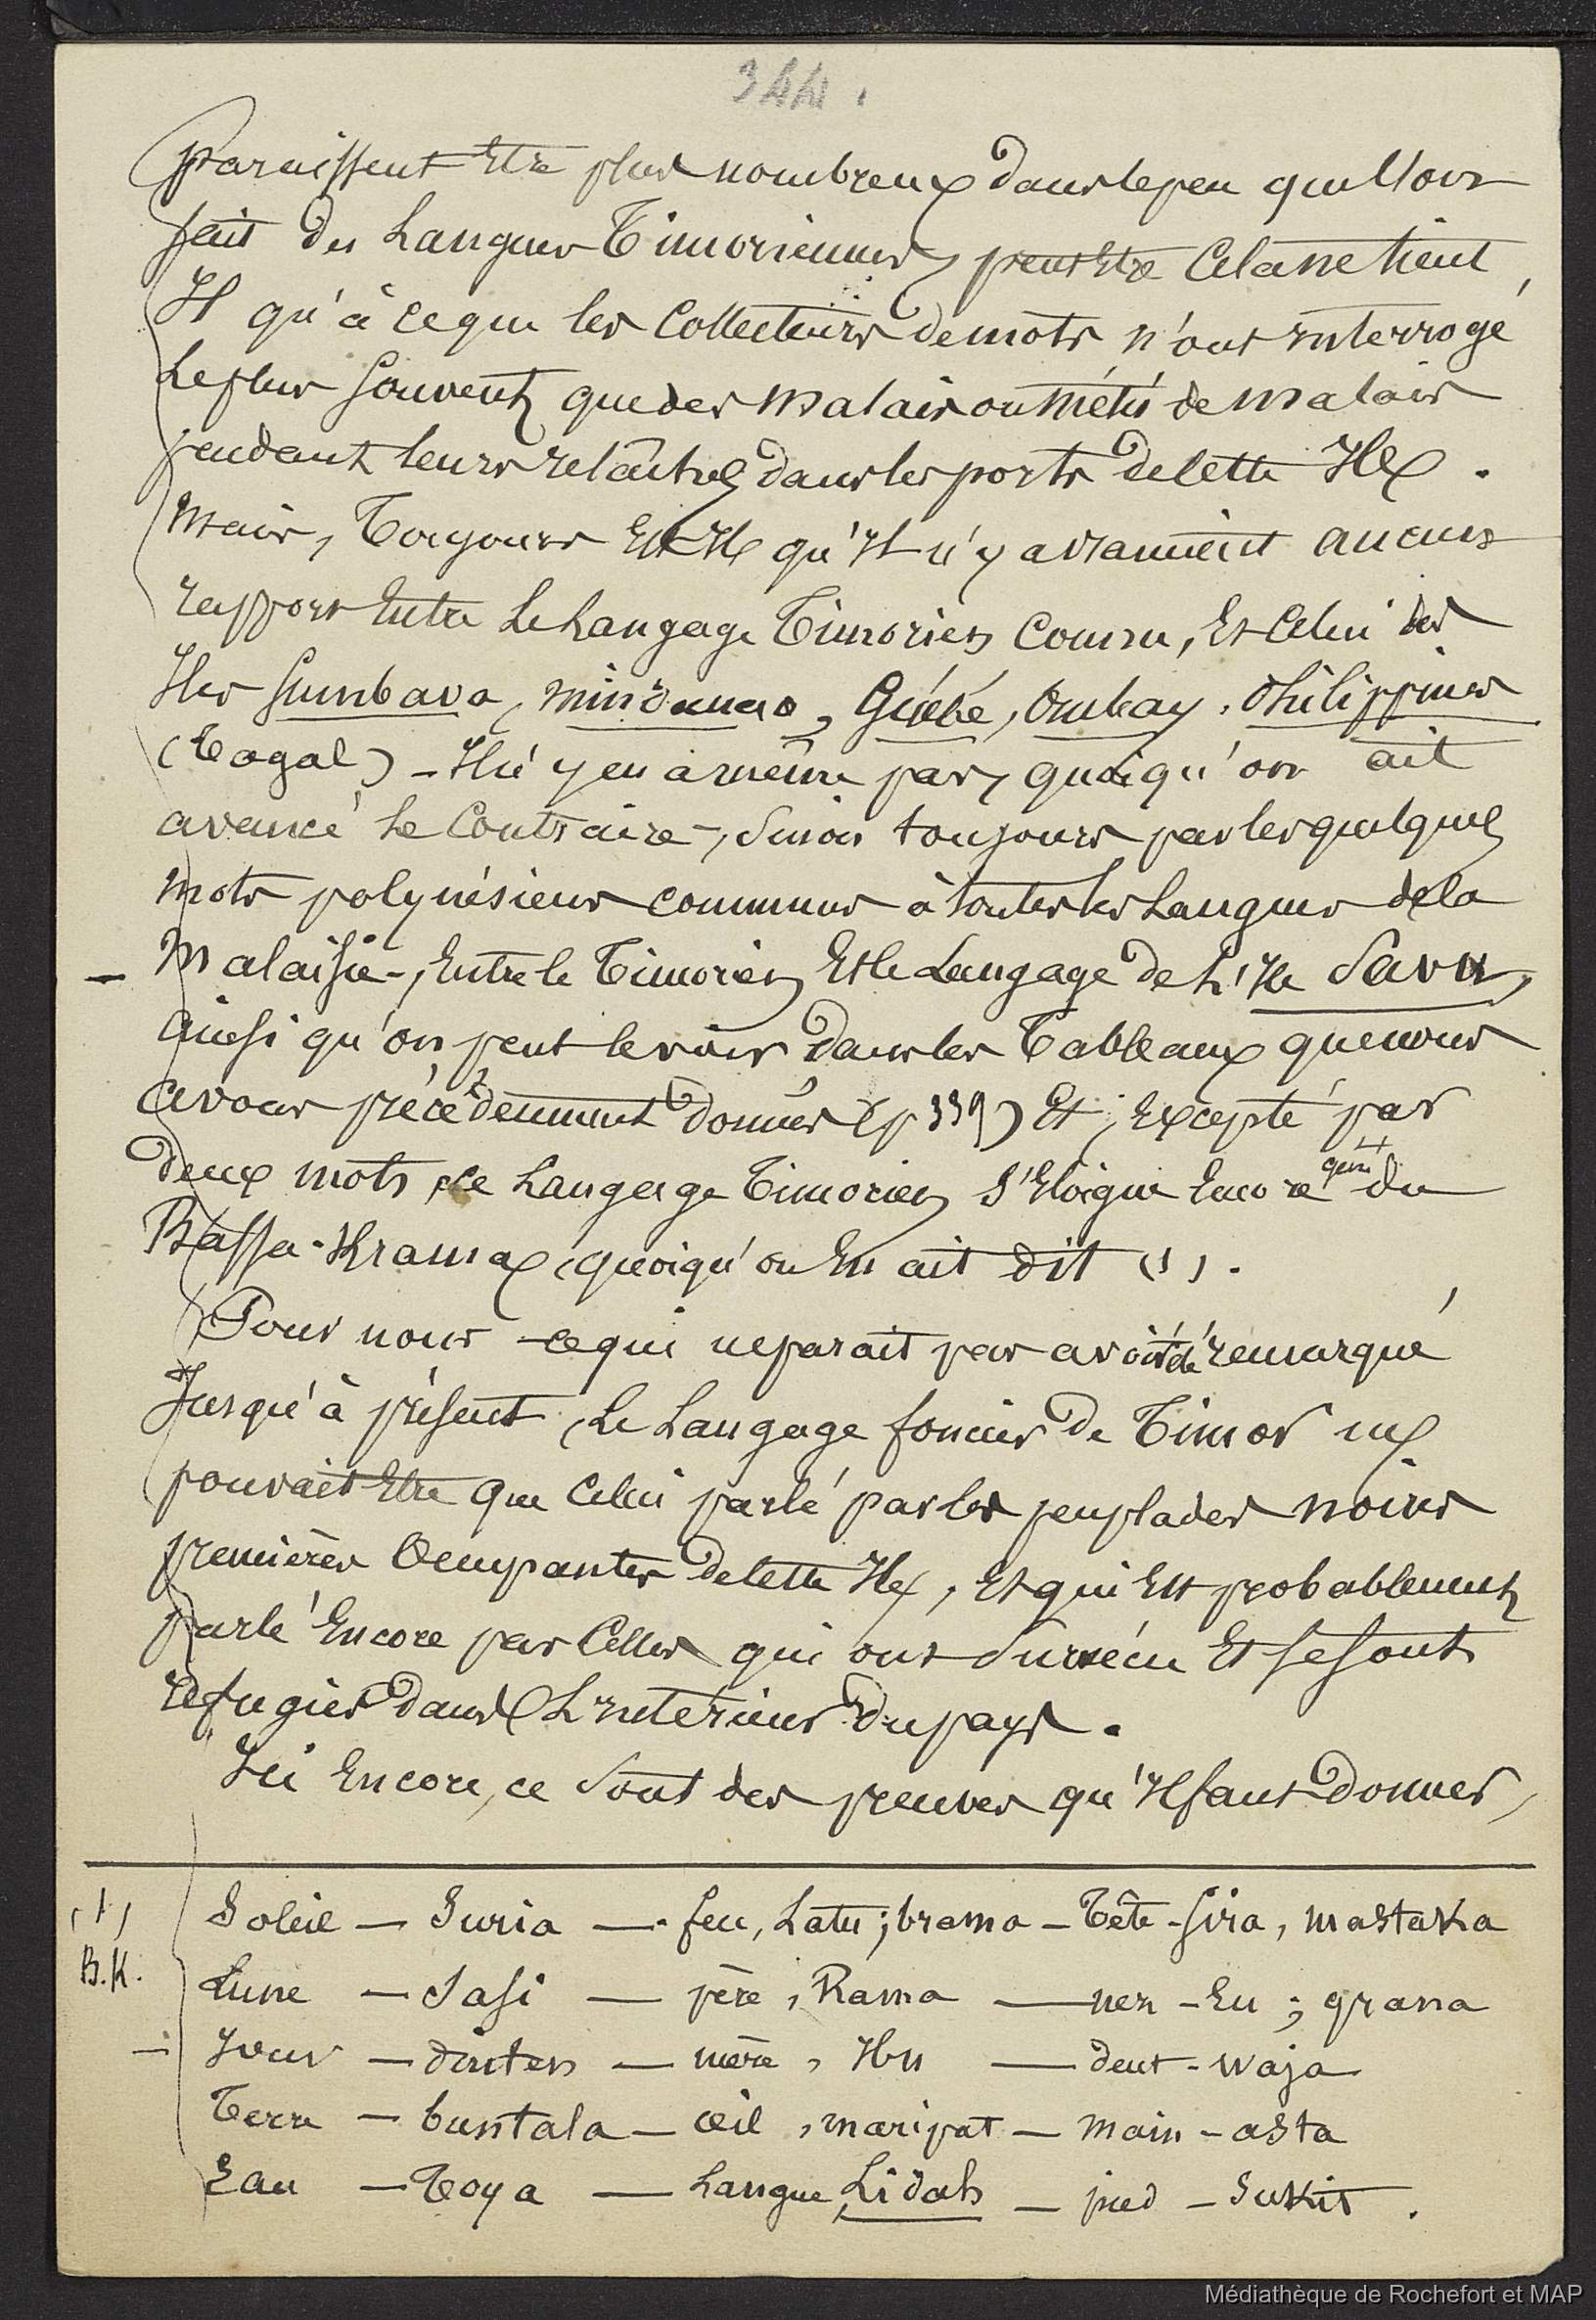 344.
paraissent être plus nombreux dans le peu que l'on
sait des Langues Timoriennes, peut être cela ne tient
Il qu'à ce que les Collecteurs de mots n'ont interrogé
Le plus souvent que des malais ou métis de malais
pendant leurs relâches dans les ports de cette Ile.
Mais, Toujours Est-Il qu'Il n'y a vraiment aucun
rapport Entre Le Langage Timorien connu, Et Celui des
Iles Sumbava, mindanao, Guébé, Ombay, Philippines
(Tagal) - Il n'y en a même pas, quoiqu'on ait
avancé Le Contraire -, Sinon toujours par les quelques
mots polynésiens communs à toutes les Langues de la
- Malaisie -, Entre le Timorien Et le Langage de L'Ile Savu,
ainsi qu'on peut le voir dans les Tableaux que nous
avons précédemment donnés (p 339) Et, Excepté par
deux mots, Le Langage Timorien S'Eloigne Encore du
Bassa-Krama, quoiqu'on En ait dit (1).
Pour nous - ce qui ne parait pas avoir été remarqué
Jusqu'à présent, Le Langage foncier de Timor ne
pouvait Etre que Celui parlé par les peuplades noires
premières Occupantes de cette Ile, Et qui Est probablement
parlé Encore par Celles qui ont Survécu Et se sont
refugiées dans L'Interieur du pays.
Ici Encore, ce Sont des preuves qu'Il faut Donner,
(1) Soleil - Suria - feu, Latu; brama - Tête - Sira, mastaka
B.K. Lune - Sasi - père, Rama - nez - Eu; grana
- Jour - dinten - mère, Ibu - dent - waja
Terre - buntala - œil, maripat - main - asta
Eau - Toya - Langue, Lidah - pied - Sukit.
Médiathèque de Rochefort et MAP